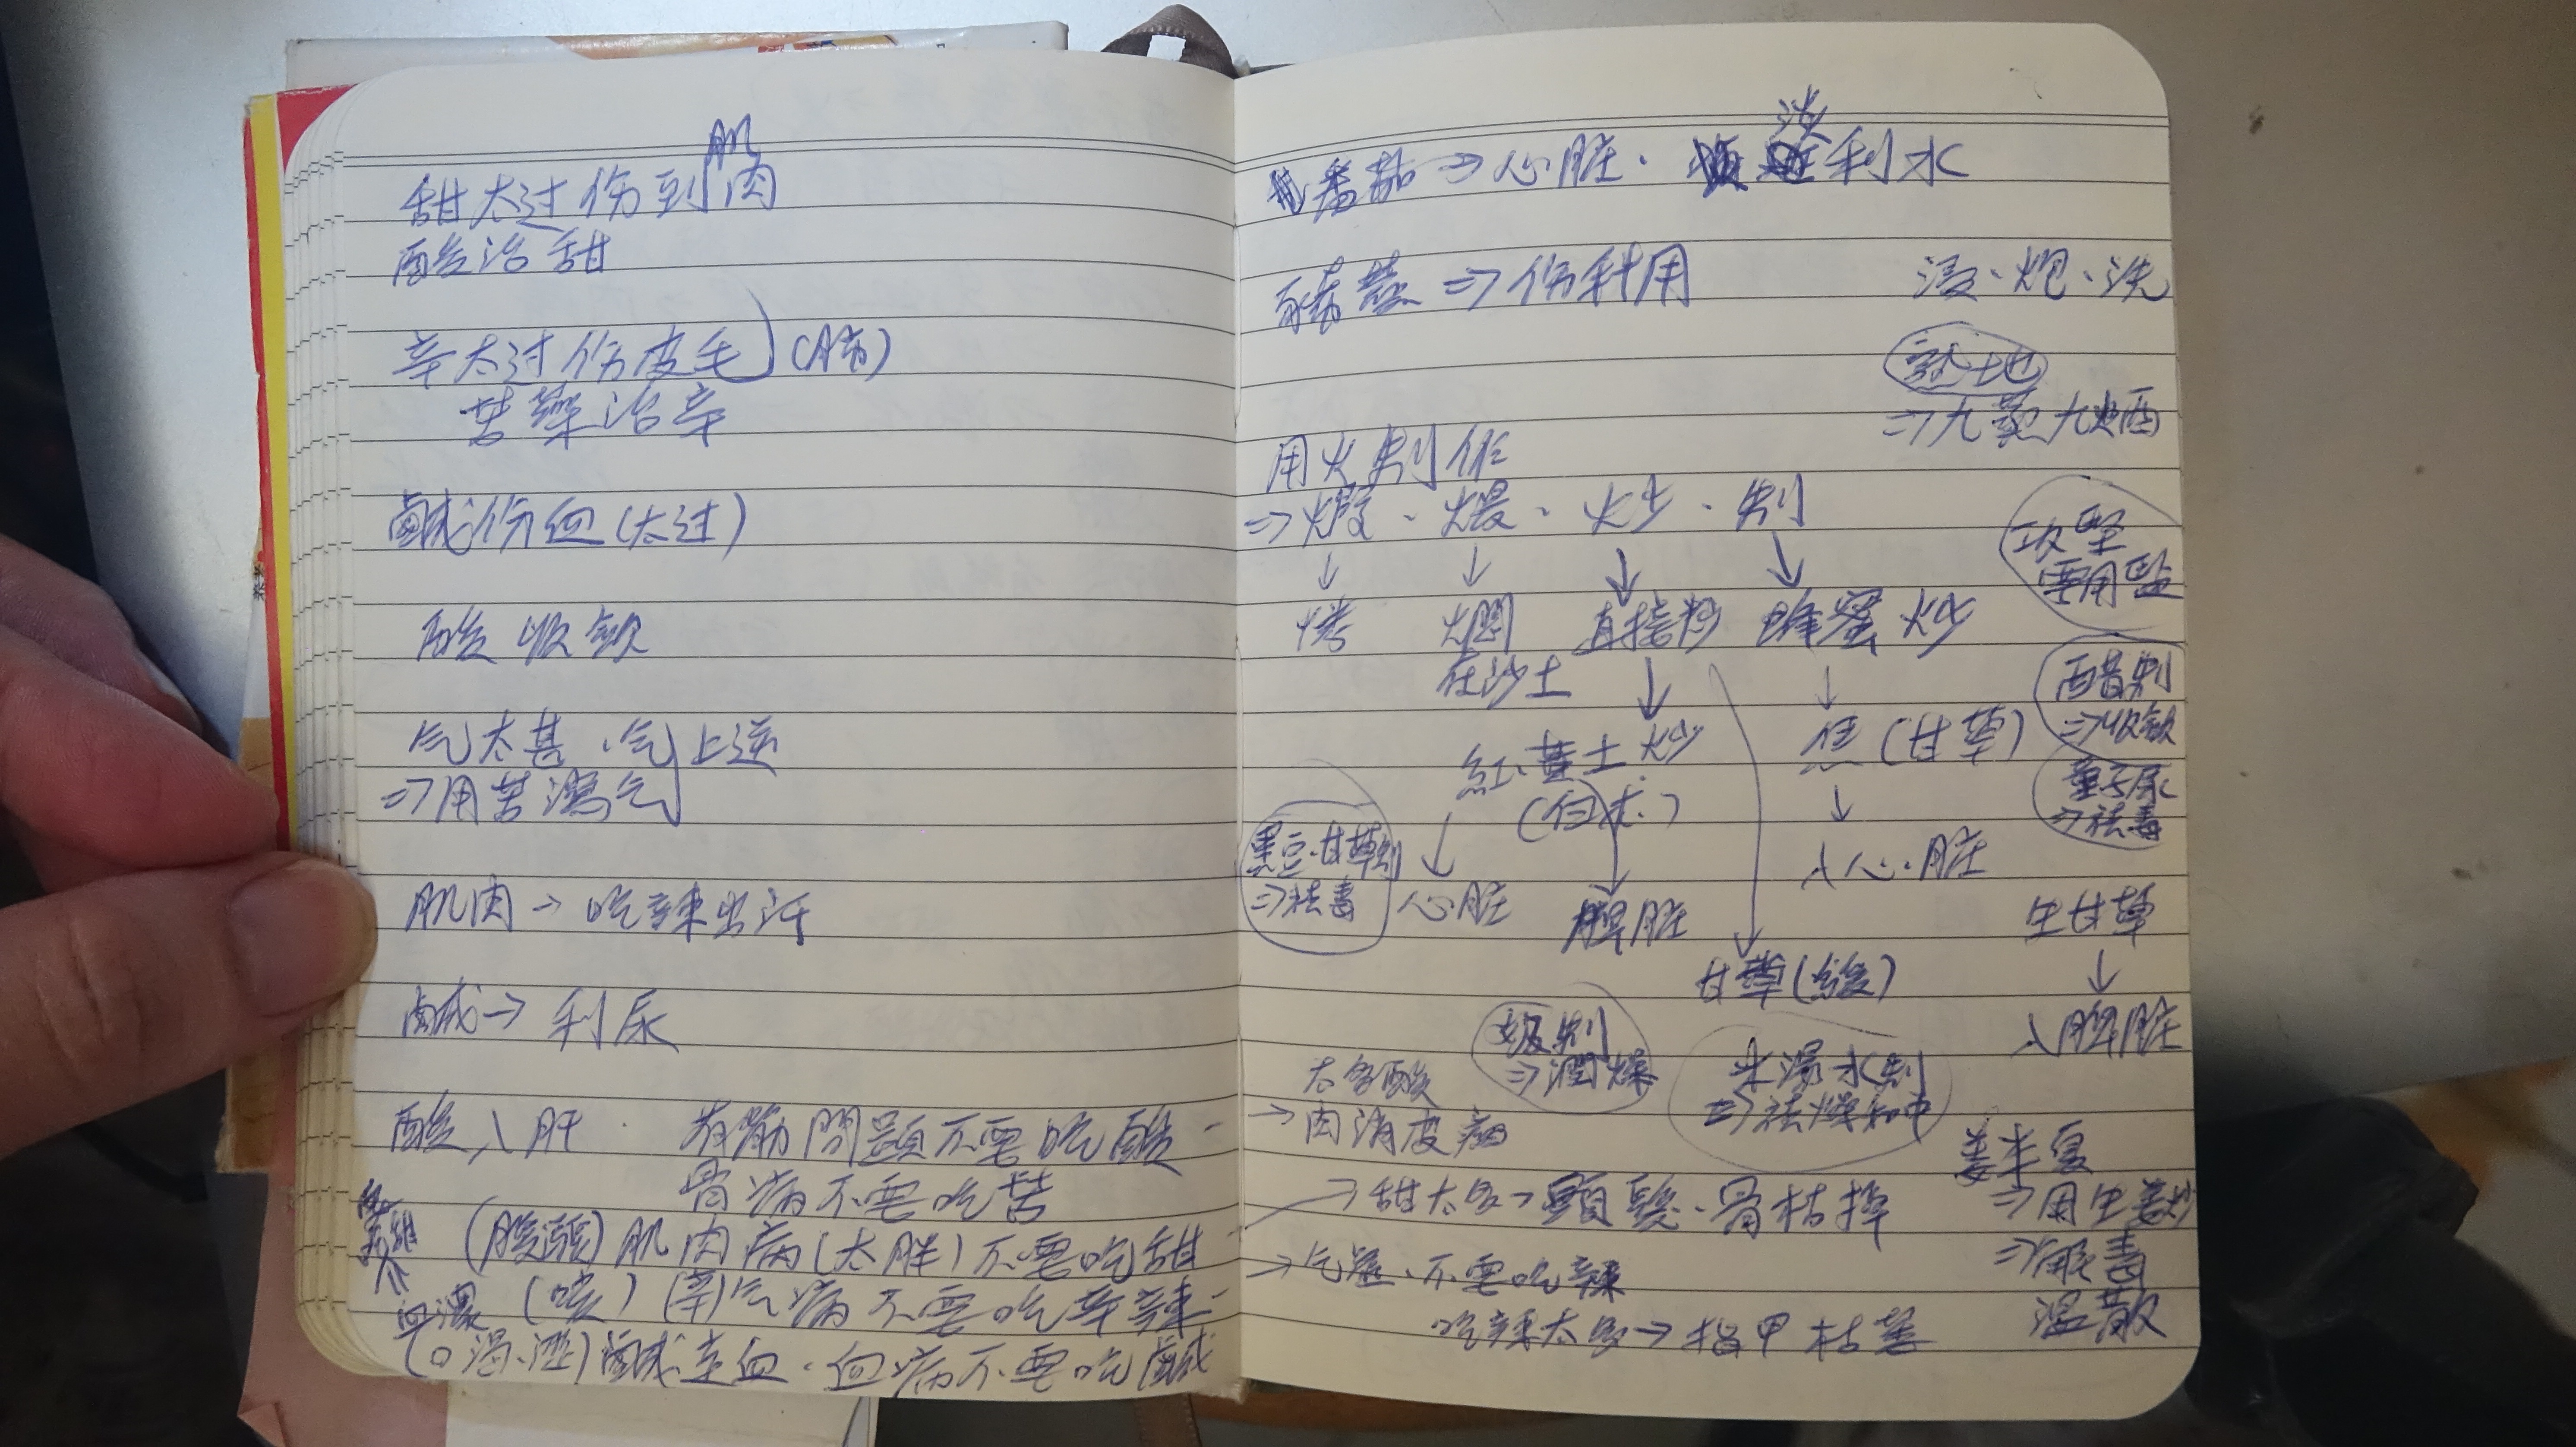 甜太过伤到肌肉
酸治甜
辛太过伤皮毛(肺)
苦藥治辛
鹹伤血(太过)
酸收歛
气太甚、气上逆
⇒用苦瀉气
肌肉→吃辣出汗
鹹→利尿
酸入肝 有筋問題不要吃酸
骨病不要吃苦
肌肉病(太胖)不要吃甜
(咳)(辛)气病不要吃辛辣
血濃
(口渴、)鹹走血、血病不要吃鹹
番茄→心脏. 淡利水
⇒伤科用
浸、炮、洗
熟地
⇒九蒸九晒
用火制作
⇒煅、煨、炒、制
烤 燜 直接炒 蜂蜜炒
在沙土
攻堅
要用盐
醋制
⇒收歛
紅、黄土炒
(白朮)
焦(甘草)
童子尿
⇒祛毒
黑豆、甘草制
⇒祛毒
心脏
脾脏
入心、脏
生甘草
甘草(緩)
入脾脏
⇒潤燥
米湯水制
⇒祛燥和中
太多酸
→肉消皮
姜半夏
⇒用生姜炒
⇒解毒
温散
→甜太多→頭髮、骨枯掉
→气虚、不要吃辣
吃辣太多→指甲枯萎